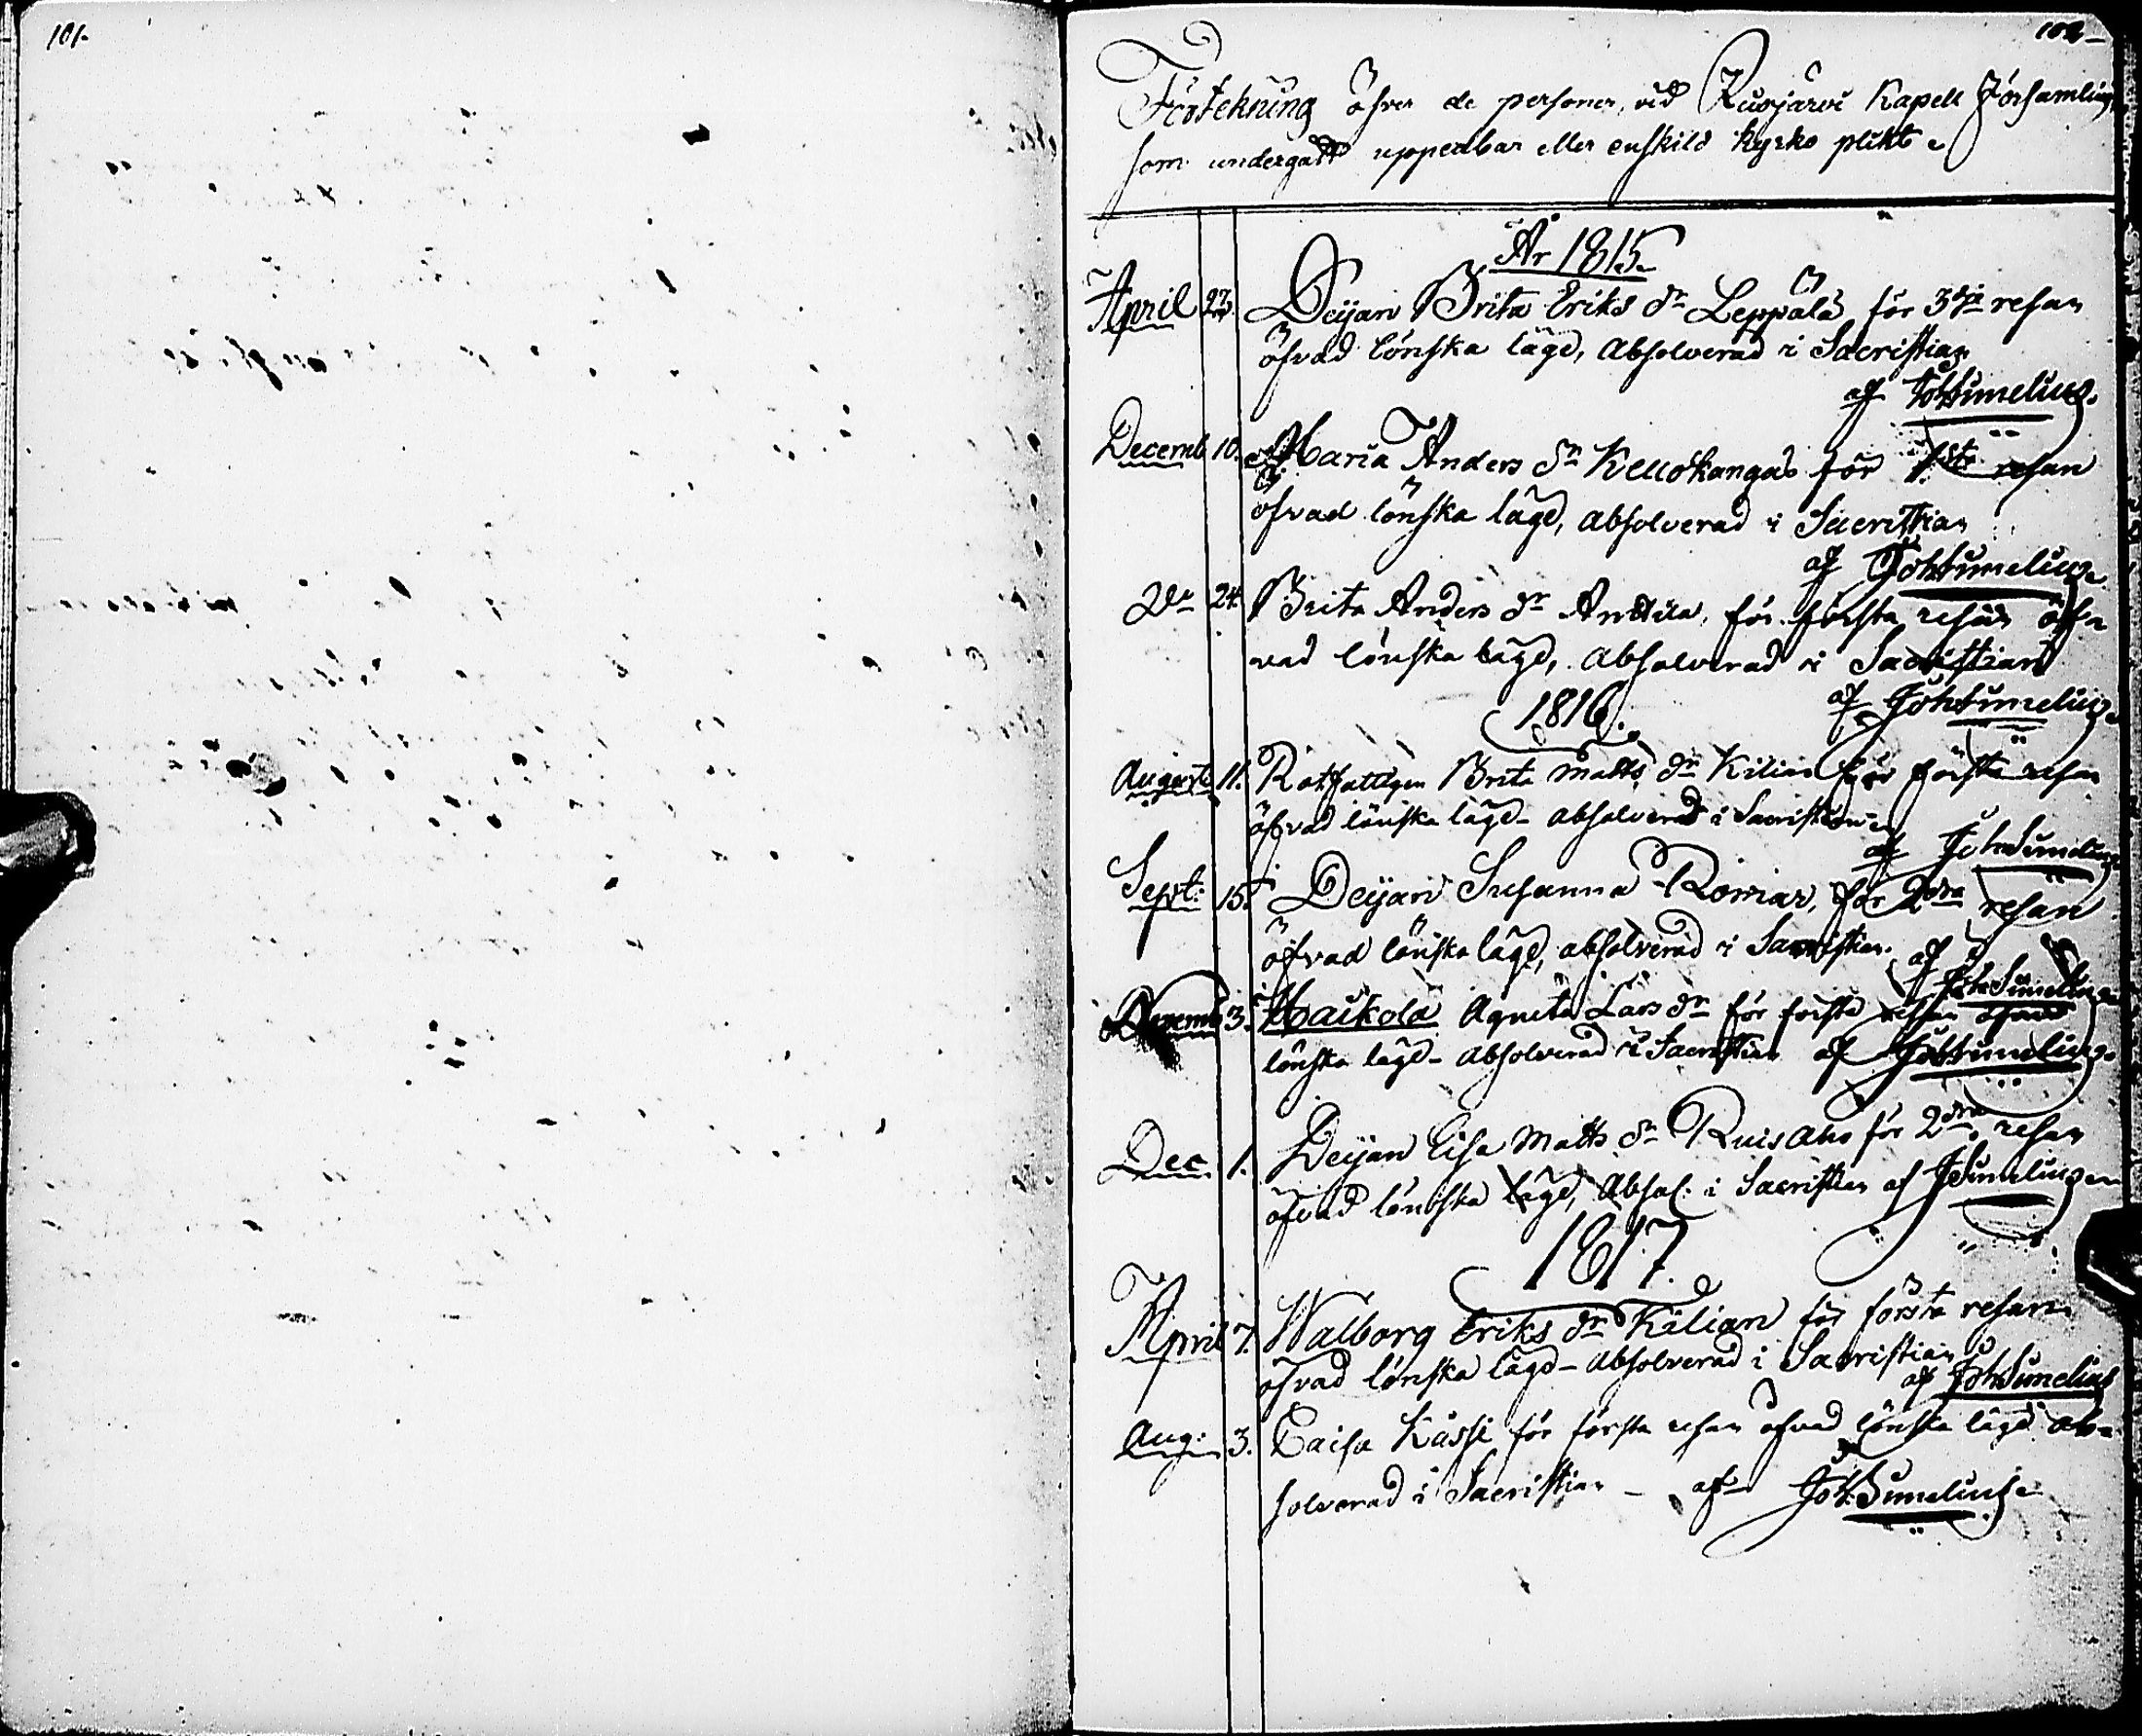 101.
102
Förtekning öfver de personer, vid Kuojärvi Kapell Församling,
som undergått uppenbar eller enskild kyrko plikt.
År 1815.
April 23. Deijan Brita Eriks dr Leppälä för 3dje resan
öfvad lönska läge, absolverad i Sacristian
af Joh Simelius.
Decemb 10. Maria Anders dr Kellokangas för 1sta resan
öfvad lönska läge, absolverad i Sacristian
af Joh Simelius.
Do 24. Brita Anders dr Anttila, för första resan öf-
vad lönska läge, absolverad i Sacristian
af Joh Simelius.
1816.
Augusti 11. Rotfattigen Brita Matts dr Kilian för första resan
öfvad lönska läge - absolverad i Sacristian
af Joh Simelius
Sept: 15. Deijan Susanna för 2dra resan
öfvad lönska läge, absolverad i Sacristian. af
Joh Simelius
3. Haikola Agneta Lars dr för första resan öfvad
lönska läge - absolverad i Sacristian af Joh Simelius.
Dec. 1. Deijan Lisa Matts dr Ruis aho för 2dra resan
öfvad lönska läge, absol: i Sacristian af J Simelius
1817.
April 7. Walborg Eriks dr Kilian för första resan
öfvad lönska läge - absolverad i Sacristian
af Joh Simelius
Aug: 3. Caisa Kässi för första resan öfvad lönska läge ab-
solverad i Sacristian - af Joh. Simelius.